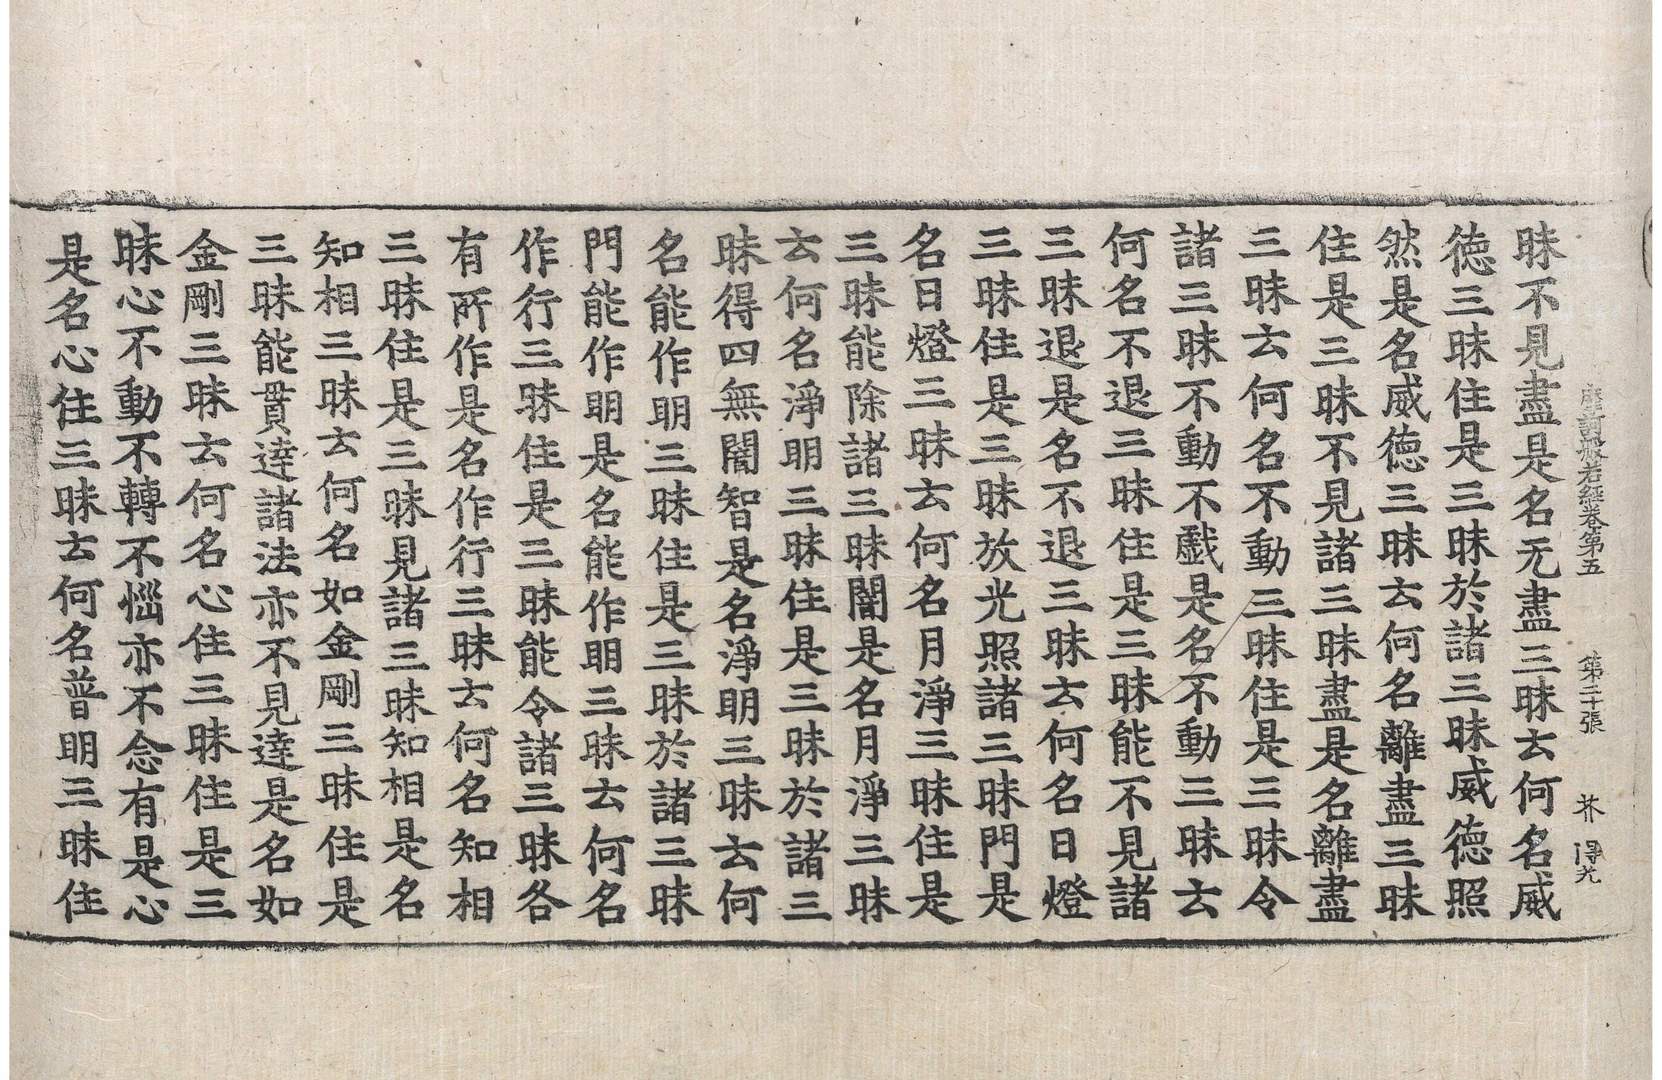 摩訶般若經卷第五 第二十張 芥 得光
昧不見盡是名无盡三昧去何名威
德三昧住是三昧於諸三昧威德照
然是名威德三昧去何名離盡三昧
住是三昧不見諸三昧盡是名離盡
三昧去何名不動三昧住是三昧令
諸三昧不動不戲是名不動三昧去
何名不退三昧住是三昧能不見諸
三昧退是名不退三昧去何名日燈
三昧住是三昧放光照諸三昧門是
名日燈三昧去何名月淨三昧住是
三昧能除諸三昧闇是名月淨三昧
去何名淨明三昧住是三昧於諸三
昧得四無閡智是名淨明三昧去何
名能作明三昧住是三昧於諸三昧
門能作明是名能作明三昧去何名
作行三昧住是三昧能令諸三昧各
有所作是名作行三昧去何名知相
三昧住是三昧見諸三昧知相是名
知相三昧去何名如金剛三昧住是
三昧能貫達諸法亦不見達是名如
金剛三昧去何名心住三昧住是三
昧心不動不轉不惱亦不念有是心
是名心住三昧去何名普明三昧住